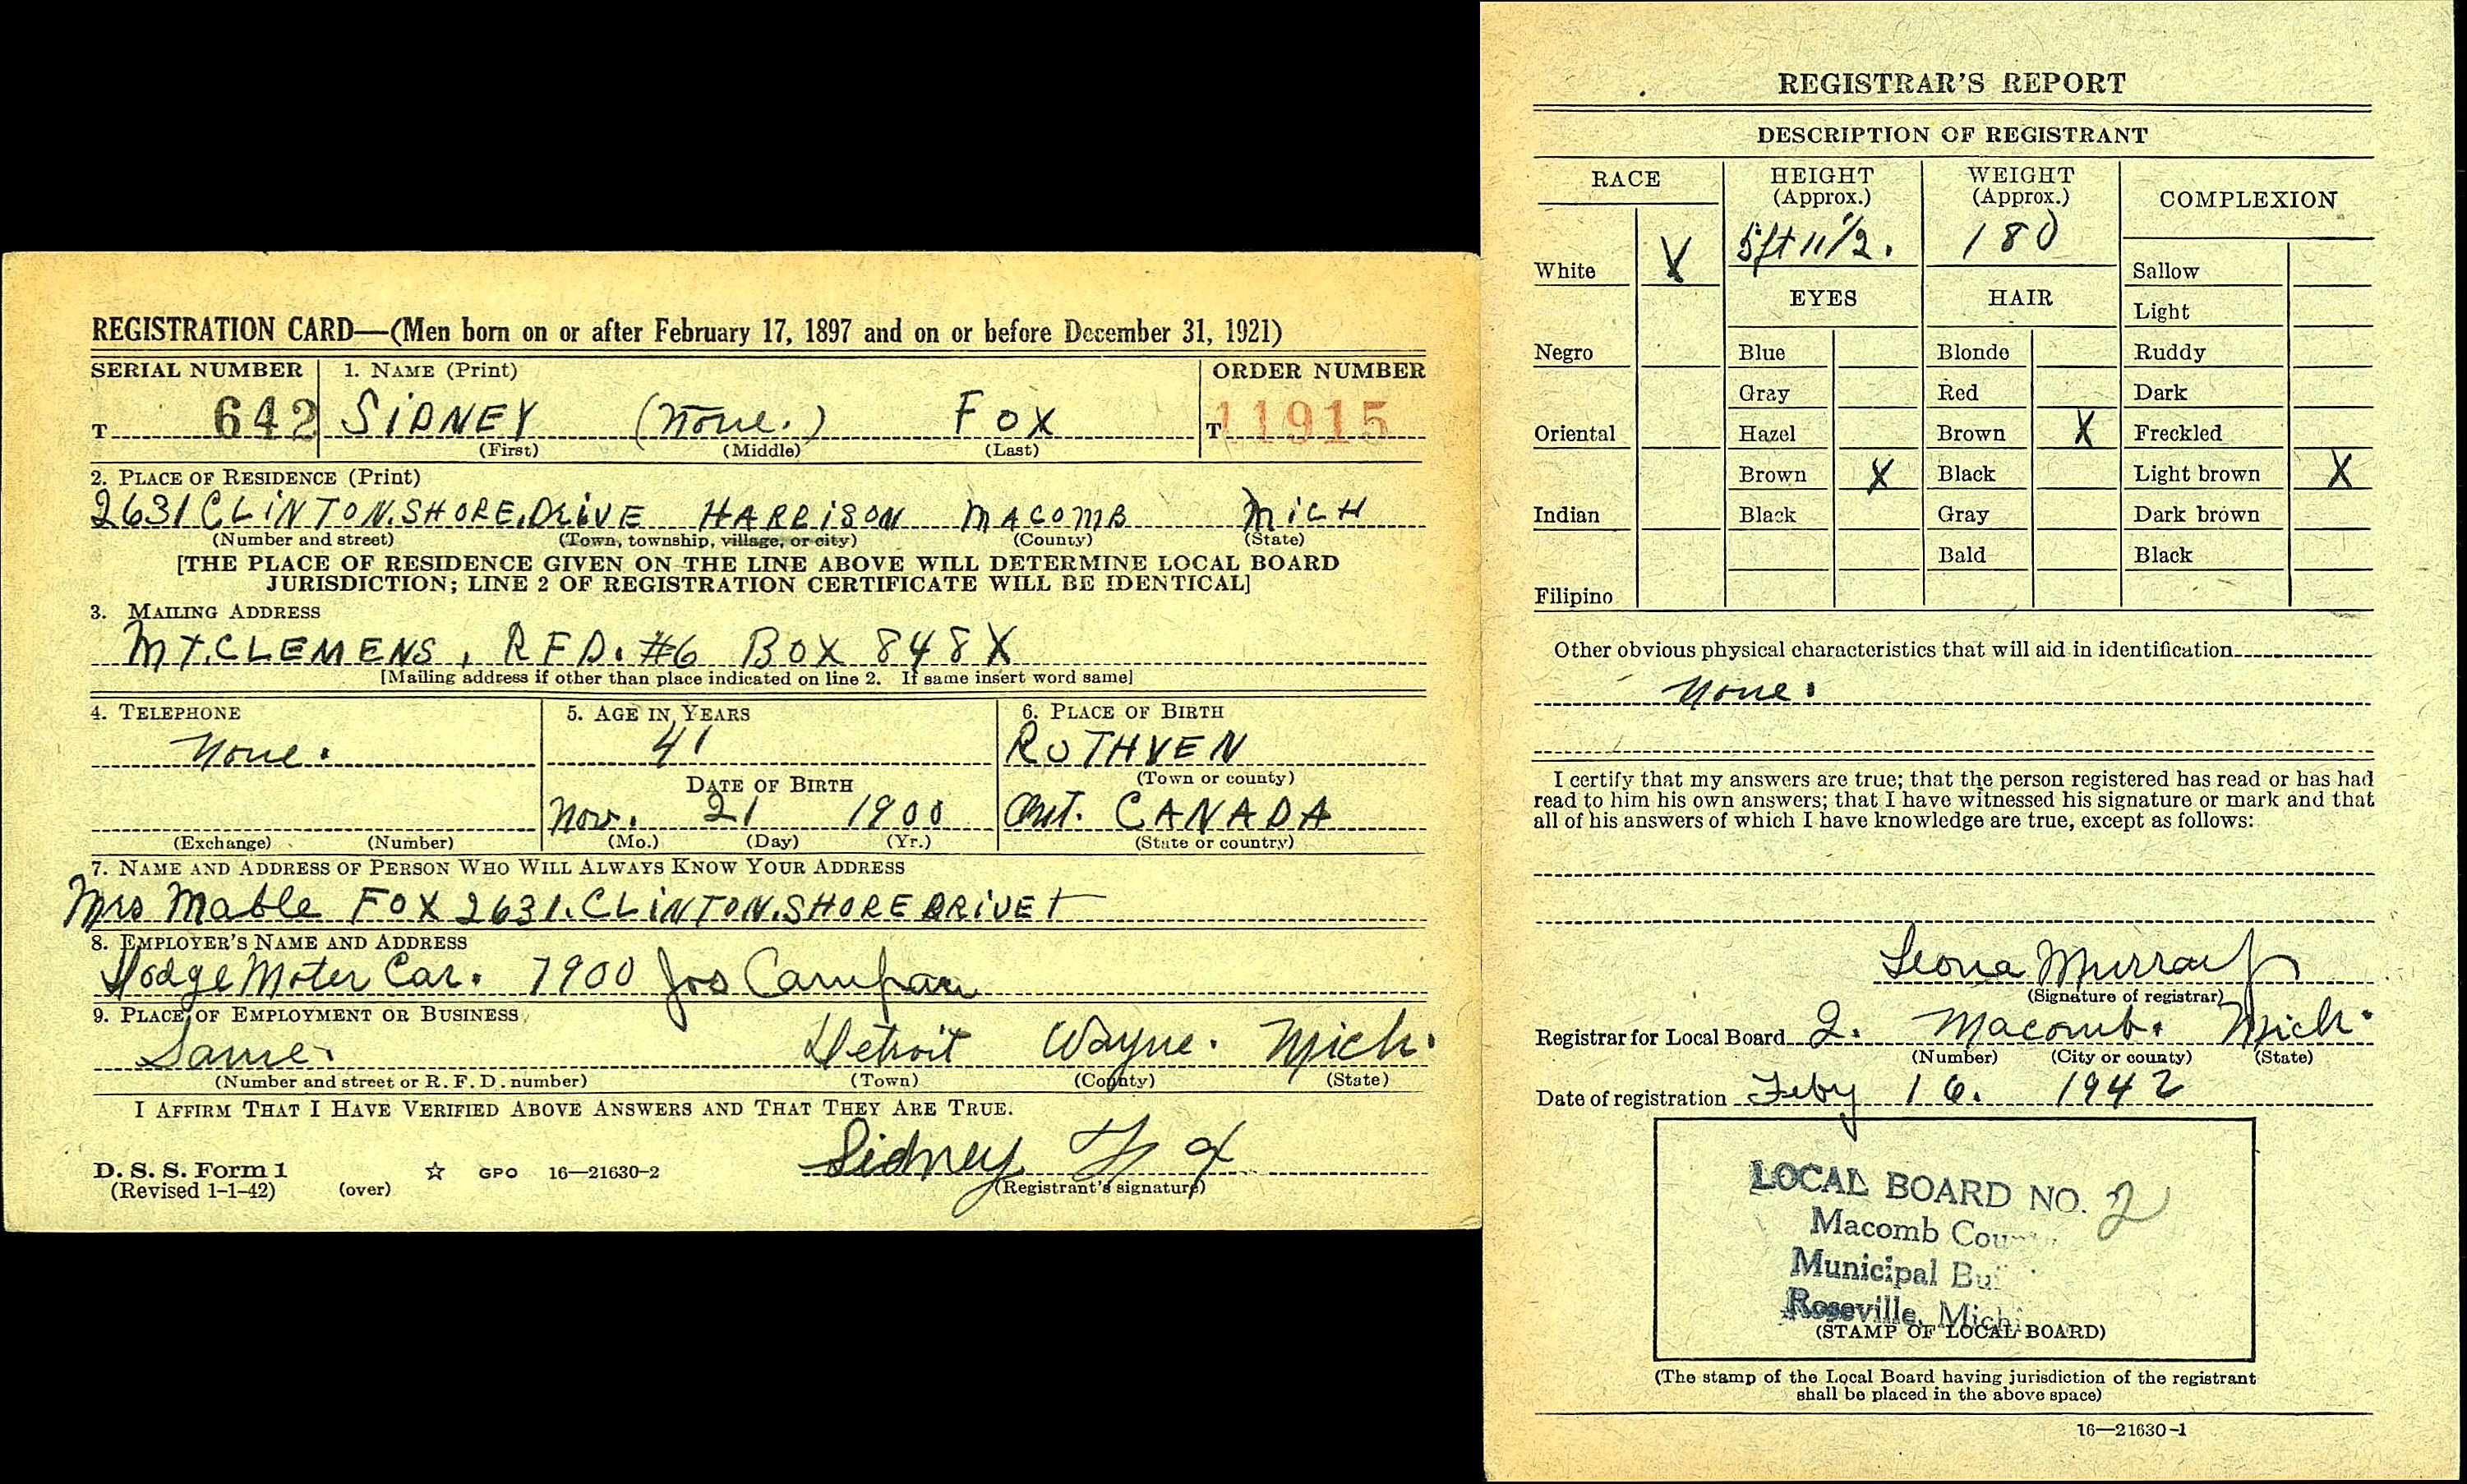 REGISTRATION CARD—(Men born on or after February 17, 1897 and on or before December 31, 1921)
SERIAL NUMBER 1. NAME (Print) ORDER NUMBER
T 642 SiDNEY (None.) FOX T 11915
(First) (Middle) (Last)
2. PLACE OF RESIDENCE (Print)
2631 CLiNTON.SHORE.DRiVE HARRiSON MACOMB MiCH
(Number and street) (Town, township, village, or city) (County) (State)
[THE PLACE OF RESIDENCE GIVEN ON THE LINE ABOVE WILL DETERMINE LOCAL BOARD
JURISDICTION; LINE 2 OF REGISTRATION CERTIFICATE WILL BE IDENTICAL]
3. MAILING ADDRESS
MT.CLEMENS, RFD. #6 BOX 848X
[Mailing address if other than place indicated on line 2. If same insert word same]
4. TELEPHONE 5. AGE IN YEARS 6. PLACE OF BIRTH
None. 41 RUTHVEN
(Town or county)
DATE OF BIRTH
Nov. 21 1900 Ont. CANADA
(Exchange) (Number) (Mo.) (Day) (Yr.) (State or country)
7. NAME AND ADDRESS OF PERSON WHO WILL ALWAYS KNOW YOUR ADDRESS
Mrs Mable FOX 2631.CLiNTON.SHORE DRiVE
8. EMPLOYER'S NAME AND ADDRESS
Dodge Moter Car. 7900 Jos Campau
9. PLACE OF EMPLOYMENT OR BUSINESS
Same. Detroit Wayne. Mich.
(Number and street or R. F. D. number) (Town) (County) (State)
I AFFIRM THAT I HAVE VERIFIED ABOVE ANSWERS AND THAT THEY ARE TRUE.
Sidney Fox
D. S. S. Form 1
(Revised 1-1-42) (over) ☆ GPO 16—21630-2 (Registrant's signature)
REGISTRAR'S REPORT
DESCRIPTION OF REGISTRANT
RACE HEIGHT (Approx.) WEIGHT (Approx.) COMPLEXION
5ft 11 1/2. 180
White X Sallow
EYES HAIR
Light
Negro Blue Blonde Ruddy
Gray Red Dark
Oriental Hazel Brown X Freckled
Brown X Black Light brown X
Indian Black Gray Dark brown
Bald Black
Filipino
Other obvious physical characteristics that will aid in identification
None.
I certify that my answers are true; that the person registered has read or has had
read to him his own answers; that I have witnessed his signature or mark and that
all of his answers of which I have knowledge are true, except as follows:
Leona Murray
(Signature of registrar)
Registrar for Local Board 2. Macomb. Mich.
(Number) (City or county) (State)
Date of registration Feby 16. 1942
LOCAL BOARD NO. 2
Macomb
Municipal
Roseville, Mich
(STAMP OF LOCAL BOARD)
(The stamp of the Local Board having jurisdiction of the registrant
shall be placed in the above space)
16—21630-1